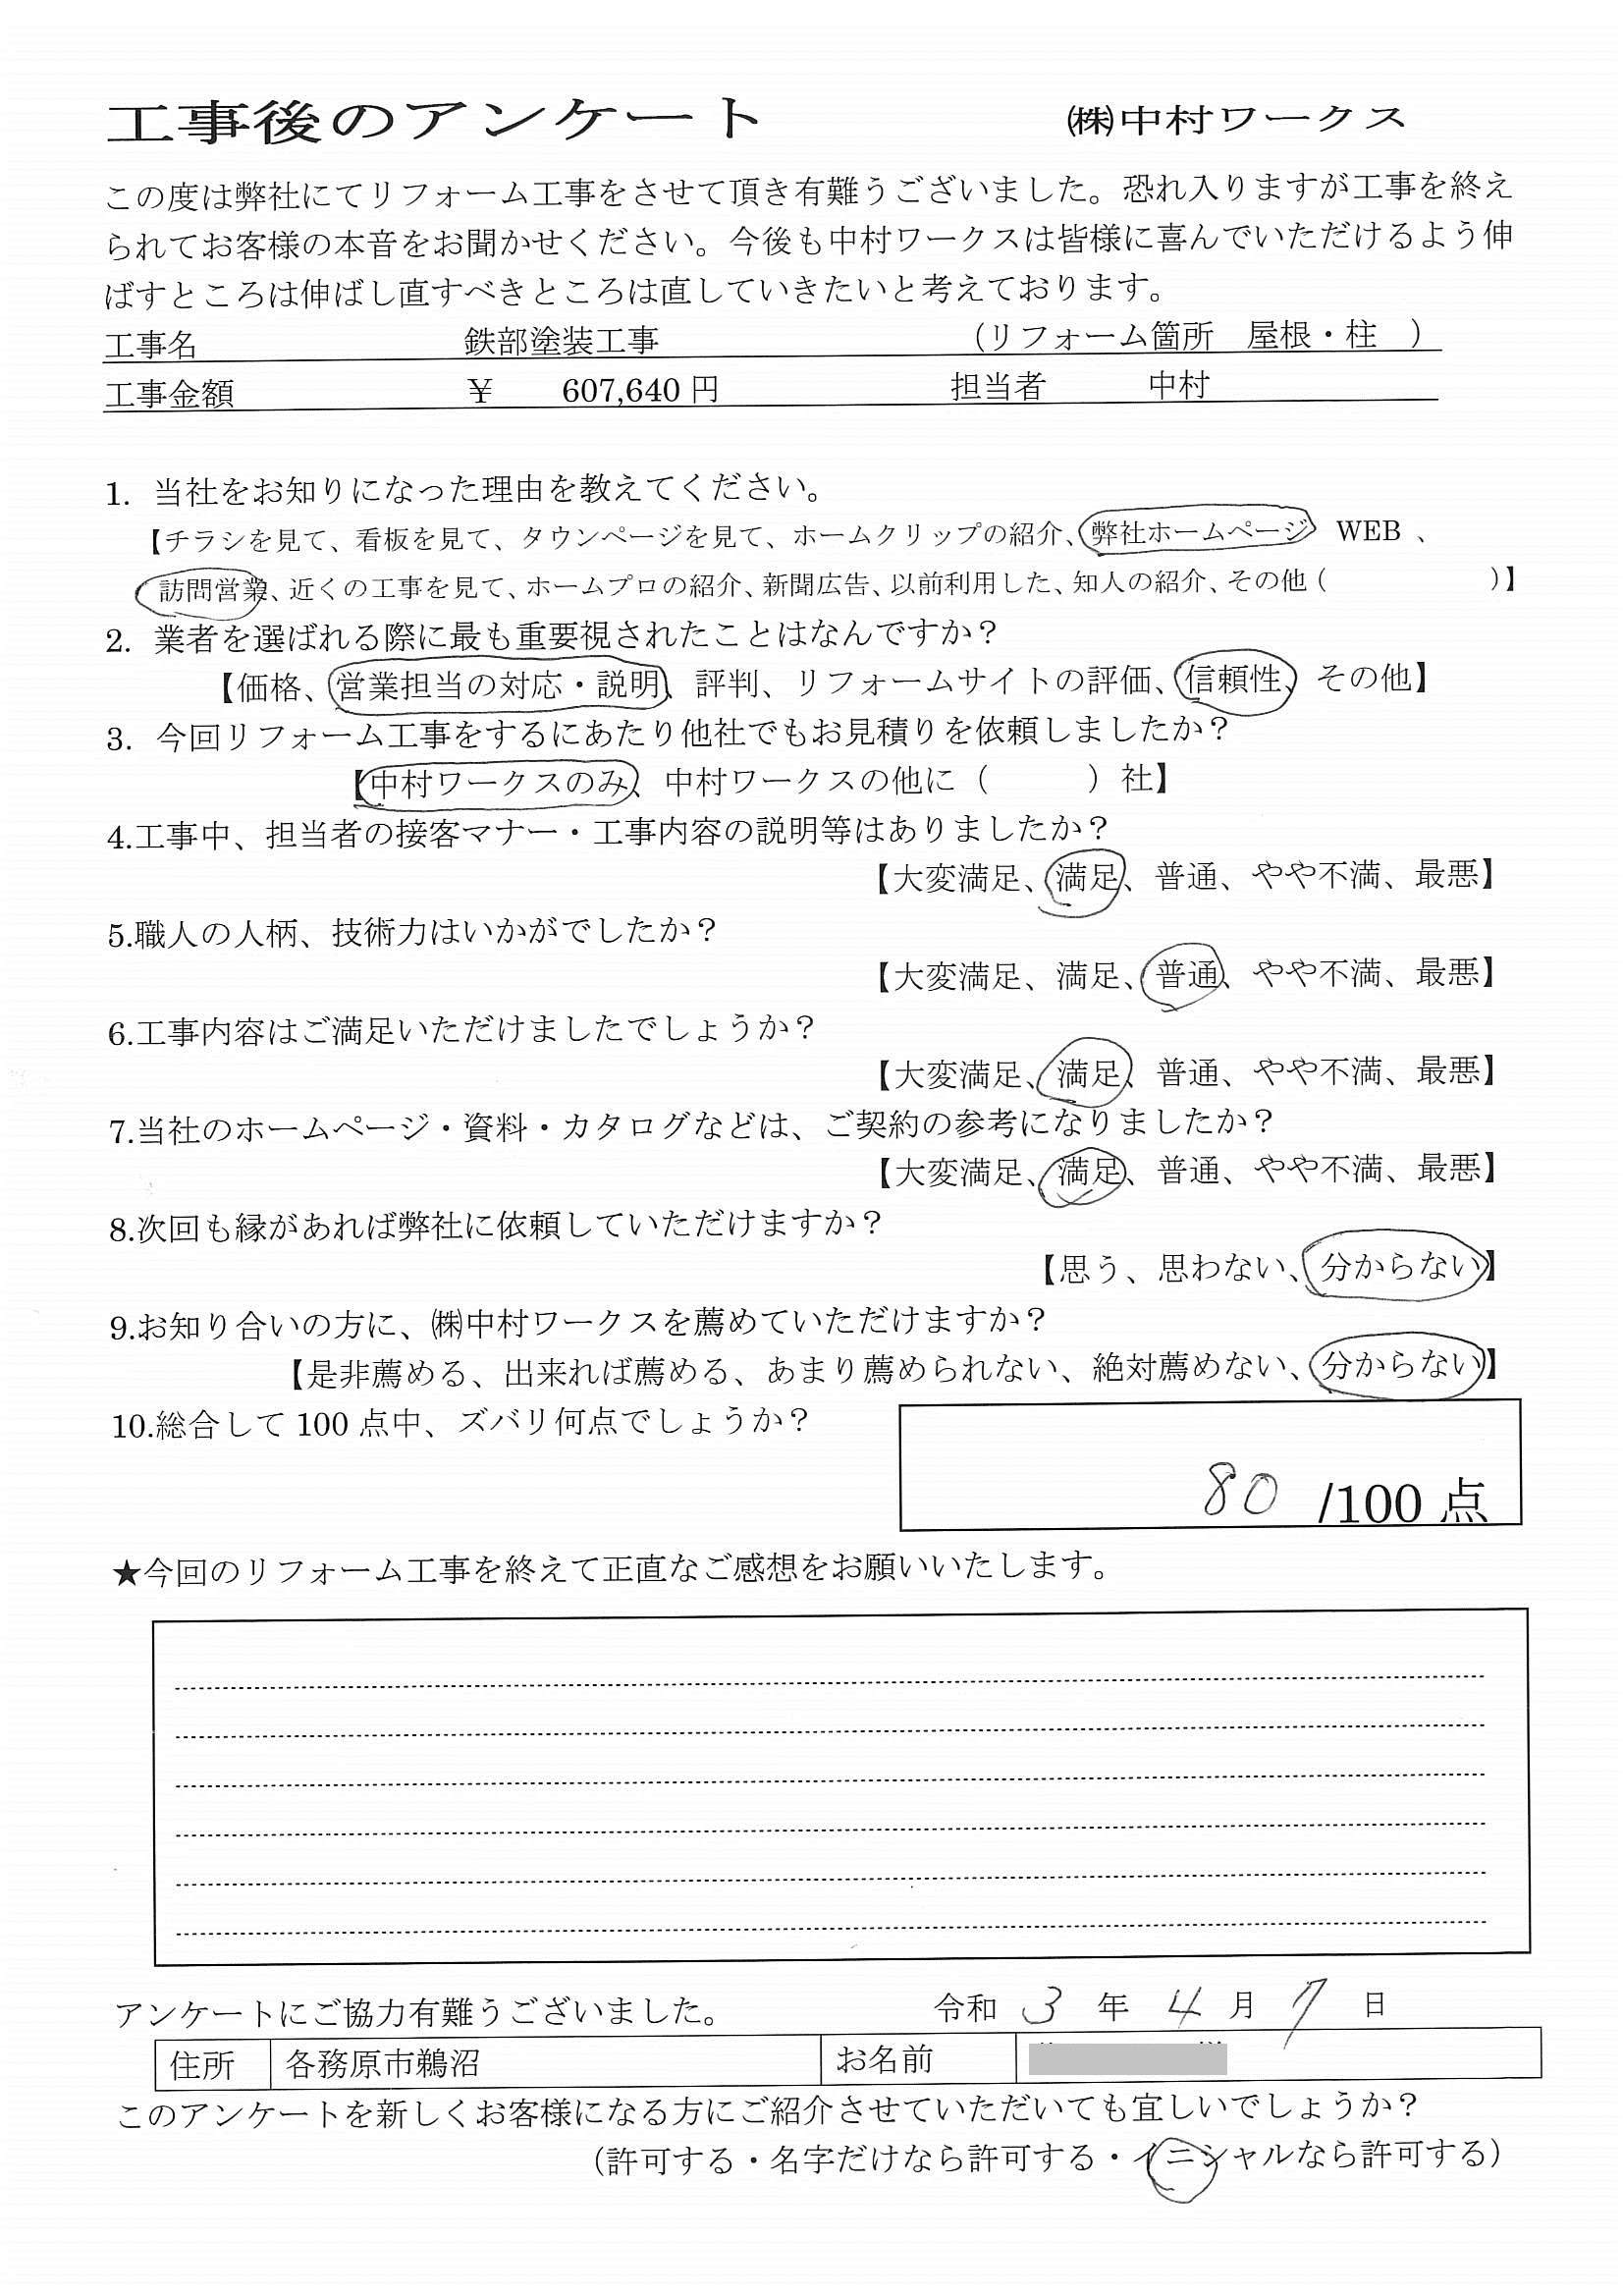 工事後のアンケート ㈱中村ワークス
この度は弊社にてリフォーム工事をさせて頂き有難うございました。恐れ入りますが工事を終え
られてお客様の本音をお聞かせください。今後も中村ワークスは皆様に喜んでいただけるよう伸
ばすところは伸ばし直すべきところは直していきたいと考えております。
工事名 鉄部塗装工事 （リフォーム箇所 屋根・柱 ）
工事金額 ￥ 607,640 円 担当者 中村
1. 当社をお知りになった理由を教えてください。
【チラシを見て、看板を見て、タウンページを見て、ホームクリップの紹介、弊社ホームページ WEB 、
訪問営業、近くの工事を見て、ホームプロの紹介、新聞広告、以前利用した、知人の紹介、その他（ ）】
2. 業者を選ばれる際に最も重要視されたことはなんですか？
【価格、営業担当の対応・説明、評判、リフォームサイトの評価、信頼性、その他】
3. 今回リフォーム工事をするにあたり他社でもお見積りを依頼しましたか？
【中村ワークスのみ、中村ワークスの他に（ ）社】
4.工事中、担当者の接客マナー・工事内容の説明等はありましたか？
【大変満足、満足、普通、やや不満、最悪】
5.職人の人柄、技術力はいかがでしたか？
【大変満足、満足、普通、やや不満、最悪】
6.工事内容はご満足いただけましたでしょうか？
【大変満足、満足、普通、やや不満、最悪】
7.当社のホームページ・資料・カタログなどは、ご契約の参考になりましたか？
【大変満足、満足、普通、やや不満、最悪】
8.次回も縁があれば弊社に依頼していただけますか？
【思う、思わない、分からない】
9.お知り合いの方に、㈱中村ワークスを薦めていただけますか？
【是非薦める、出来れば薦める、あまり薦められない、絶対薦めない、分からない】
10.総合して 100 点中、ズバリ何点でしょうか？
80 /100 点
★今回のリフォーム工事を終えて正直なご感想をお願いいたします。
アンケートにご協力有難うございました。 令和 3 年 4 月 7 日
住所 各務原市鵜沼 お名前
このアンケートを新しくお客様になる方にご紹介させていただいても宜しいでしょうか？
（許可する・名字だけなら許可する・イニシャルなら許可する）